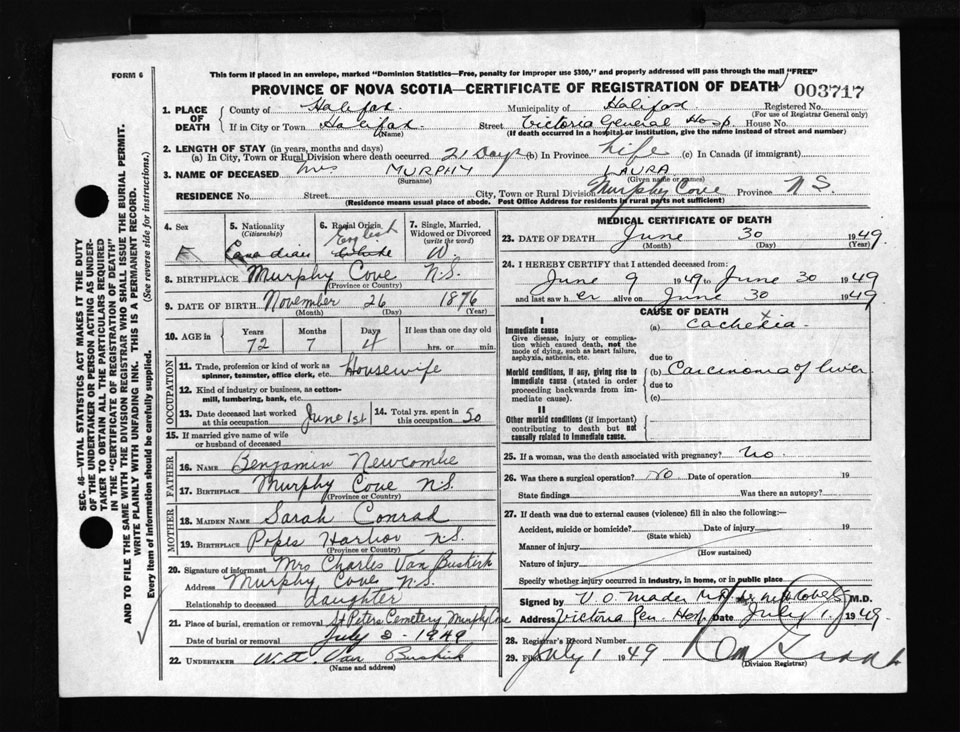 FORM 6
This form if placed in an envelope, marked "Dominion Statistics—Free, penalty for improper use $300," and properly addressed will pass through the mail "FREE"
PROVINCE OF NOVA SCOTIA—CERTIFICATE OF REGISTRATION OF DEATH
003717
1. PLACE OF DEATH
County of Halifax Municipality of Halifax Registered No.
(For use of Registrar General only)
If in City or Town Halifax Street Victoria General Hosp. House No.
(Name) (If death occurred in a hospital or institution, give the name instead of street and number)
2. LENGTH OF STAY (in years, months and days)
(a) In City, Town or Rural Division where death occurred 21 Days (b) In Province Life (c) In Canada (if immigrant)
3. NAME OF DECEASED Mrs MURPHY LAURA
(Surname) (Given name or names)
RESIDENCE No. Street City, Town or Rural Division Murphy Cove Province N S
(Residence means usual place of abode. Post Office Address for residents in rural parts not sufficient)
4. Sex F
5. Nationality (Citizenship) Canadian
6. Racial Origin English White
7. Single, Married, Widowed or Divorced (write the word) W.
8. BIRTHPLACE Murphy Cove N.S.
(Province or Country)
9. DATE OF BIRTH November 26 1876
(Month) (Day) (Year)
10. AGE in Years Months Days If less than one day old
72 7 4 hrs. or min.
OCCUPATION
11. Trade, profession or kind of work as spinner, teamster, office clerk, etc. Housewife
12. Kind of industry or business, as cotton-mill, lumbering, bank, etc.
13. Date deceased last worked at this occupation June 1st
14. Total yrs. spent in this occupation 50
15. If married give name of wife or husband of deceased
FATHER
16. NAME Benjamin Newcombe
17. BIRTHPLACE Murphy Cove N.S.
(Province or Country)
MOTHER
18. MAIDEN NAME Sarah Conrad
19. BIRTHPLACE Popes Harbor N.S.
(Province or Country)
20. Signature of informant Mrs Charles Van Buskirk
Address Murphy Cove N.S.
Relationship to deceased daughter
21. Place of burial, cremation or removal St Peters Cemetery Murphy Cove
Date of burial or removal July 2 - 1949
22. UNDERTAKER Van Buskirk
(Name and address)
MEDICAL CERTIFICATE OF DEATH
23. DATE OF DEATH June 30 1949.
(Month) (Day) (Year)
24. I HEREBY CERTIFY that I attended deceased from:
June 9 1949 to June 30 1949
and last saw her alive on June 30 1949
CAUSE OF DEATH
I
Immediate cause
Give disease, injury or complication which caused death, not the mode of dying, such as heart failure, asphyxia, asthenia, etc.
(a) Cachexia.
due to
Morbid conditions, if any, giving rise to immediate cause (stated in order proceeding backwards from immediate cause).
(b) Carcinoma of liver
due to
(c)
II
Other morbid conditions (if important) contributing to death but not causally related to immediate cause.
25. If a woman, was the death associated with pregnancy? No.
26. Was there a surgical operation? No Date of operation 19
State findings Was there an autopsy?
27. If death was due to external causes (violence) fill in also the following:—
Accident, suicide or homicide? Date of injury 19
(State which)
Manner of injury
(How sustained)
Nature of injury
Specify whether injury occurred in industry, in home, or in public place
Signed by V. O. Mader M.D.
Address Victoria Gen. Hosp Date July 1 1949.
28. Registrar's Record Number
29. Filed July 1 1949
(Division Registrar)
SEC. 46—VITAL STATISTICS ACT MAKES IT THE DUTY
OF THE UNDERTAKER OR PERSON ACTING AS UNDER-
TAKER TO OBTAIN ALL THE PARTICULARS REQUIRED
IN THE "CERTIFICATE OF REGISTRATION OF DEATH"
AND TO FILE THE SAME WITH THE DIVISION REGISTRAR WHO SHALL ISSUE THE BURIAL PERMIT.
WRITE PLAINLY WITH UNFADING INK. THIS IS A PERMANENT RECORD.
Every item of information should be carefully supplied. (See reverse side for instructions.)